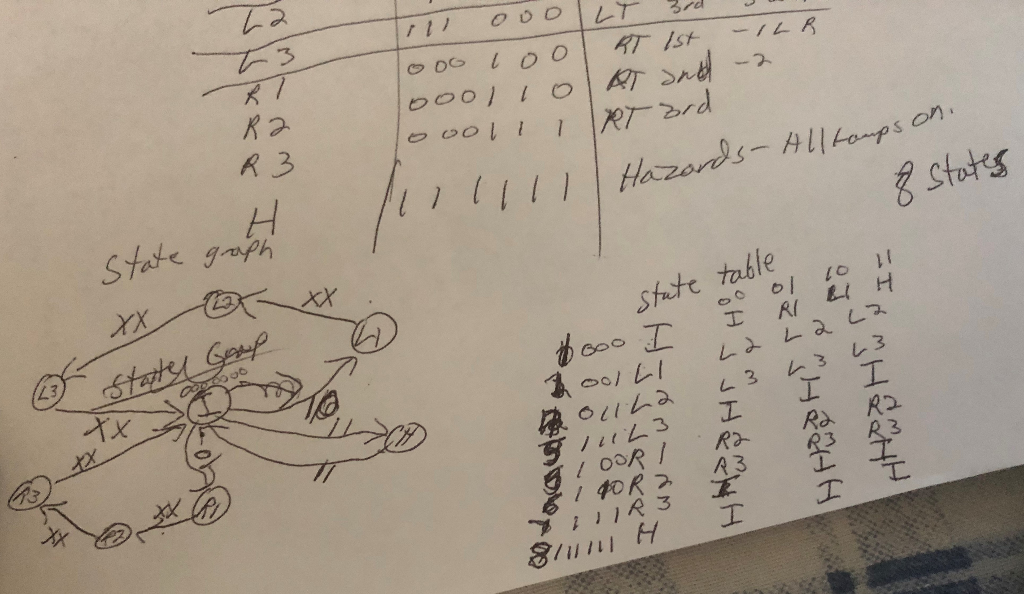 L2 111 000 LT 3rd
L3 000 100 RT 1st -1LR
R1 000110 RT 2nd -2
R2 000111 RT 3rd
R3
H 111111 Hazards - All Lamps on.
8 States
State graph
XX L2 XX
L1
L3 XX
I
H
11
R3 XX
XX R2 XX R1
state table
00 01 10 11
000 I I R1 L1 H
001 L1 L2 L2 L2
011 L2 L3 L3 L3
111 L3 I I I
100 R1 R2 R2 R2
R2 R3 R3 R3
111 R3 I I I
111111 H I I I